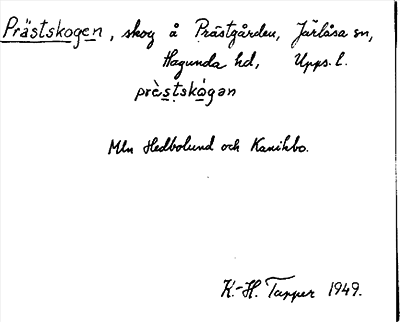 Prästskogen, skog å Prästgården, Järlåsa sn,
Hagunda hd, Upps. l.
prè̀stskó̀gan
Mln Hedbolund och Kanikbo.
K.-H. Tapper 1949.